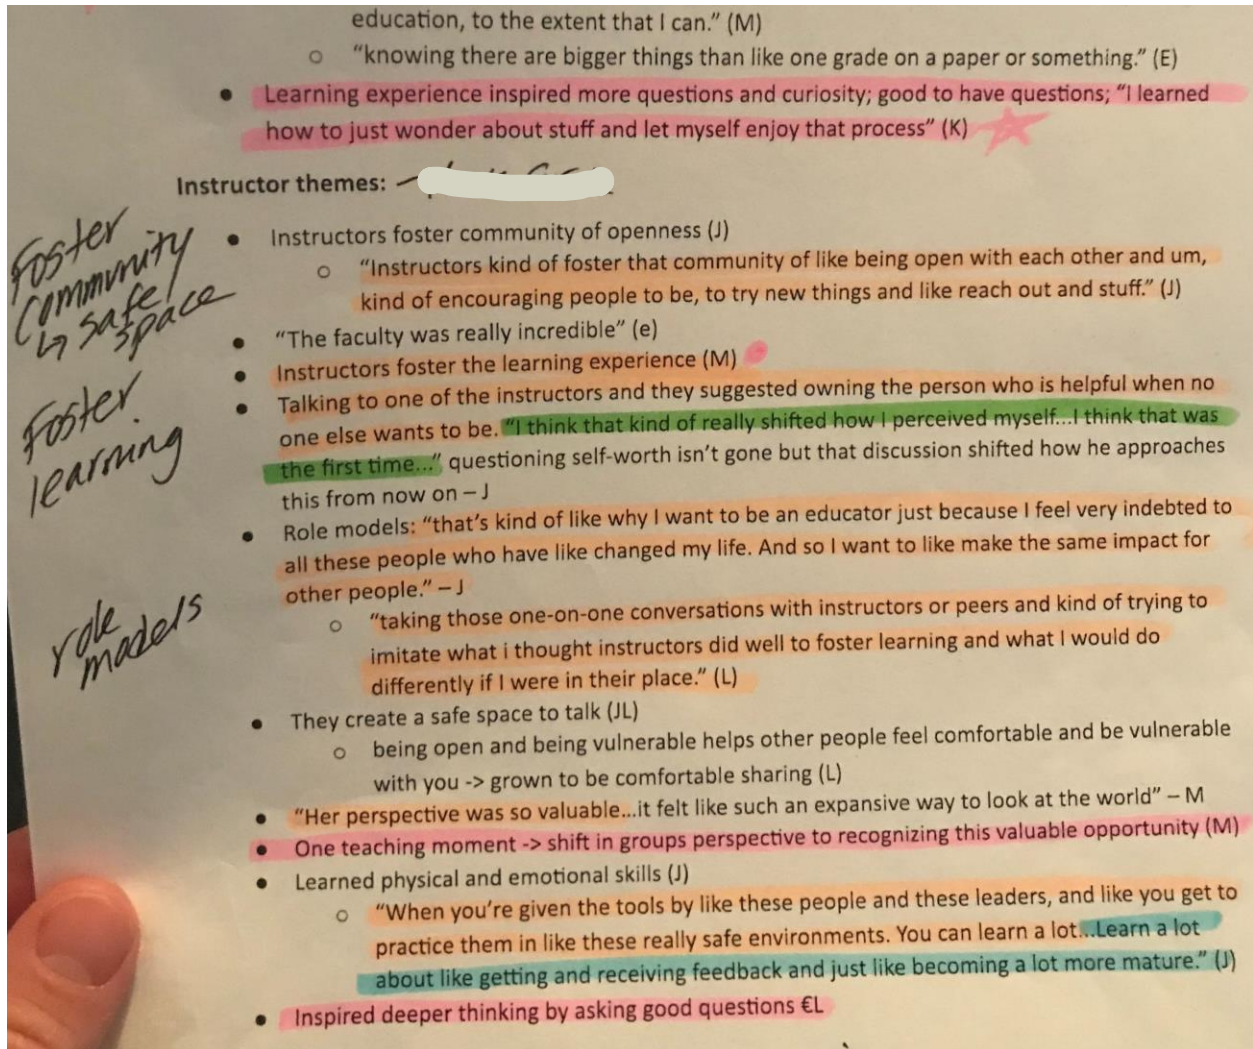 education, to the extent that I can.” (M)
o “knowing there are bigger things than like one grade on a paper or something.” (E)
• Learning experience inspired more questions and curiosity; good to have questions; “I learned
how to just wonder about stuff and let myself enjoy that process” (K)
Instructor themes:
Foster
community
↳ safe
space
• Instructors foster community of openness (J)
o “Instructors kind of foster that community of like being open with each other and um,
kind of encouraging people to be, to try new things and like reach out and stuff.” (J)
• “The faculty was really incredible” (e)
Foster
learning
• Instructors foster the learning experience (M)
• Talking to one of the instructors and they suggested owning the person who is helpful when no
one else wants to be. “I think that kind of really shifted how I perceived myself...I think that was
the first time...” questioning self-worth isn’t gone but that discussion shifted how he approaches
this from now on – J
role
models
• Role models: “that’s kind of like why I want to be an educator just because I feel very indebted to
all these people who have like changed my life. And so I want to like make the same impact for
other people.” – J
o “taking those one-on-one conversations with instructors or peers and kind of trying to
imitate what i thought instructors did well to foster learning and what I would do
differently if I were in their place.” (L)
• They create a safe space to talk (JL)
o being open and being vulnerable helps other people feel comfortable and be vulnerable
with you -> grown to be comfortable sharing (L)
• “Her perspective was so valuable...it felt like such an expansive way to look at the world” – M
• One teaching moment -> shift in groups perspective to recognizing this valuable opportunity (M)
• Learned physical and emotional skills (J)
o “When you’re given the tools by like these people and these leaders, and like you get to
practice them in like these really safe environments. You can learn a lot...Learn a lot
about like getting and receiving feedback and just like becoming a lot more mature.” (J)
• Inspired deeper thinking by asking good questions €L